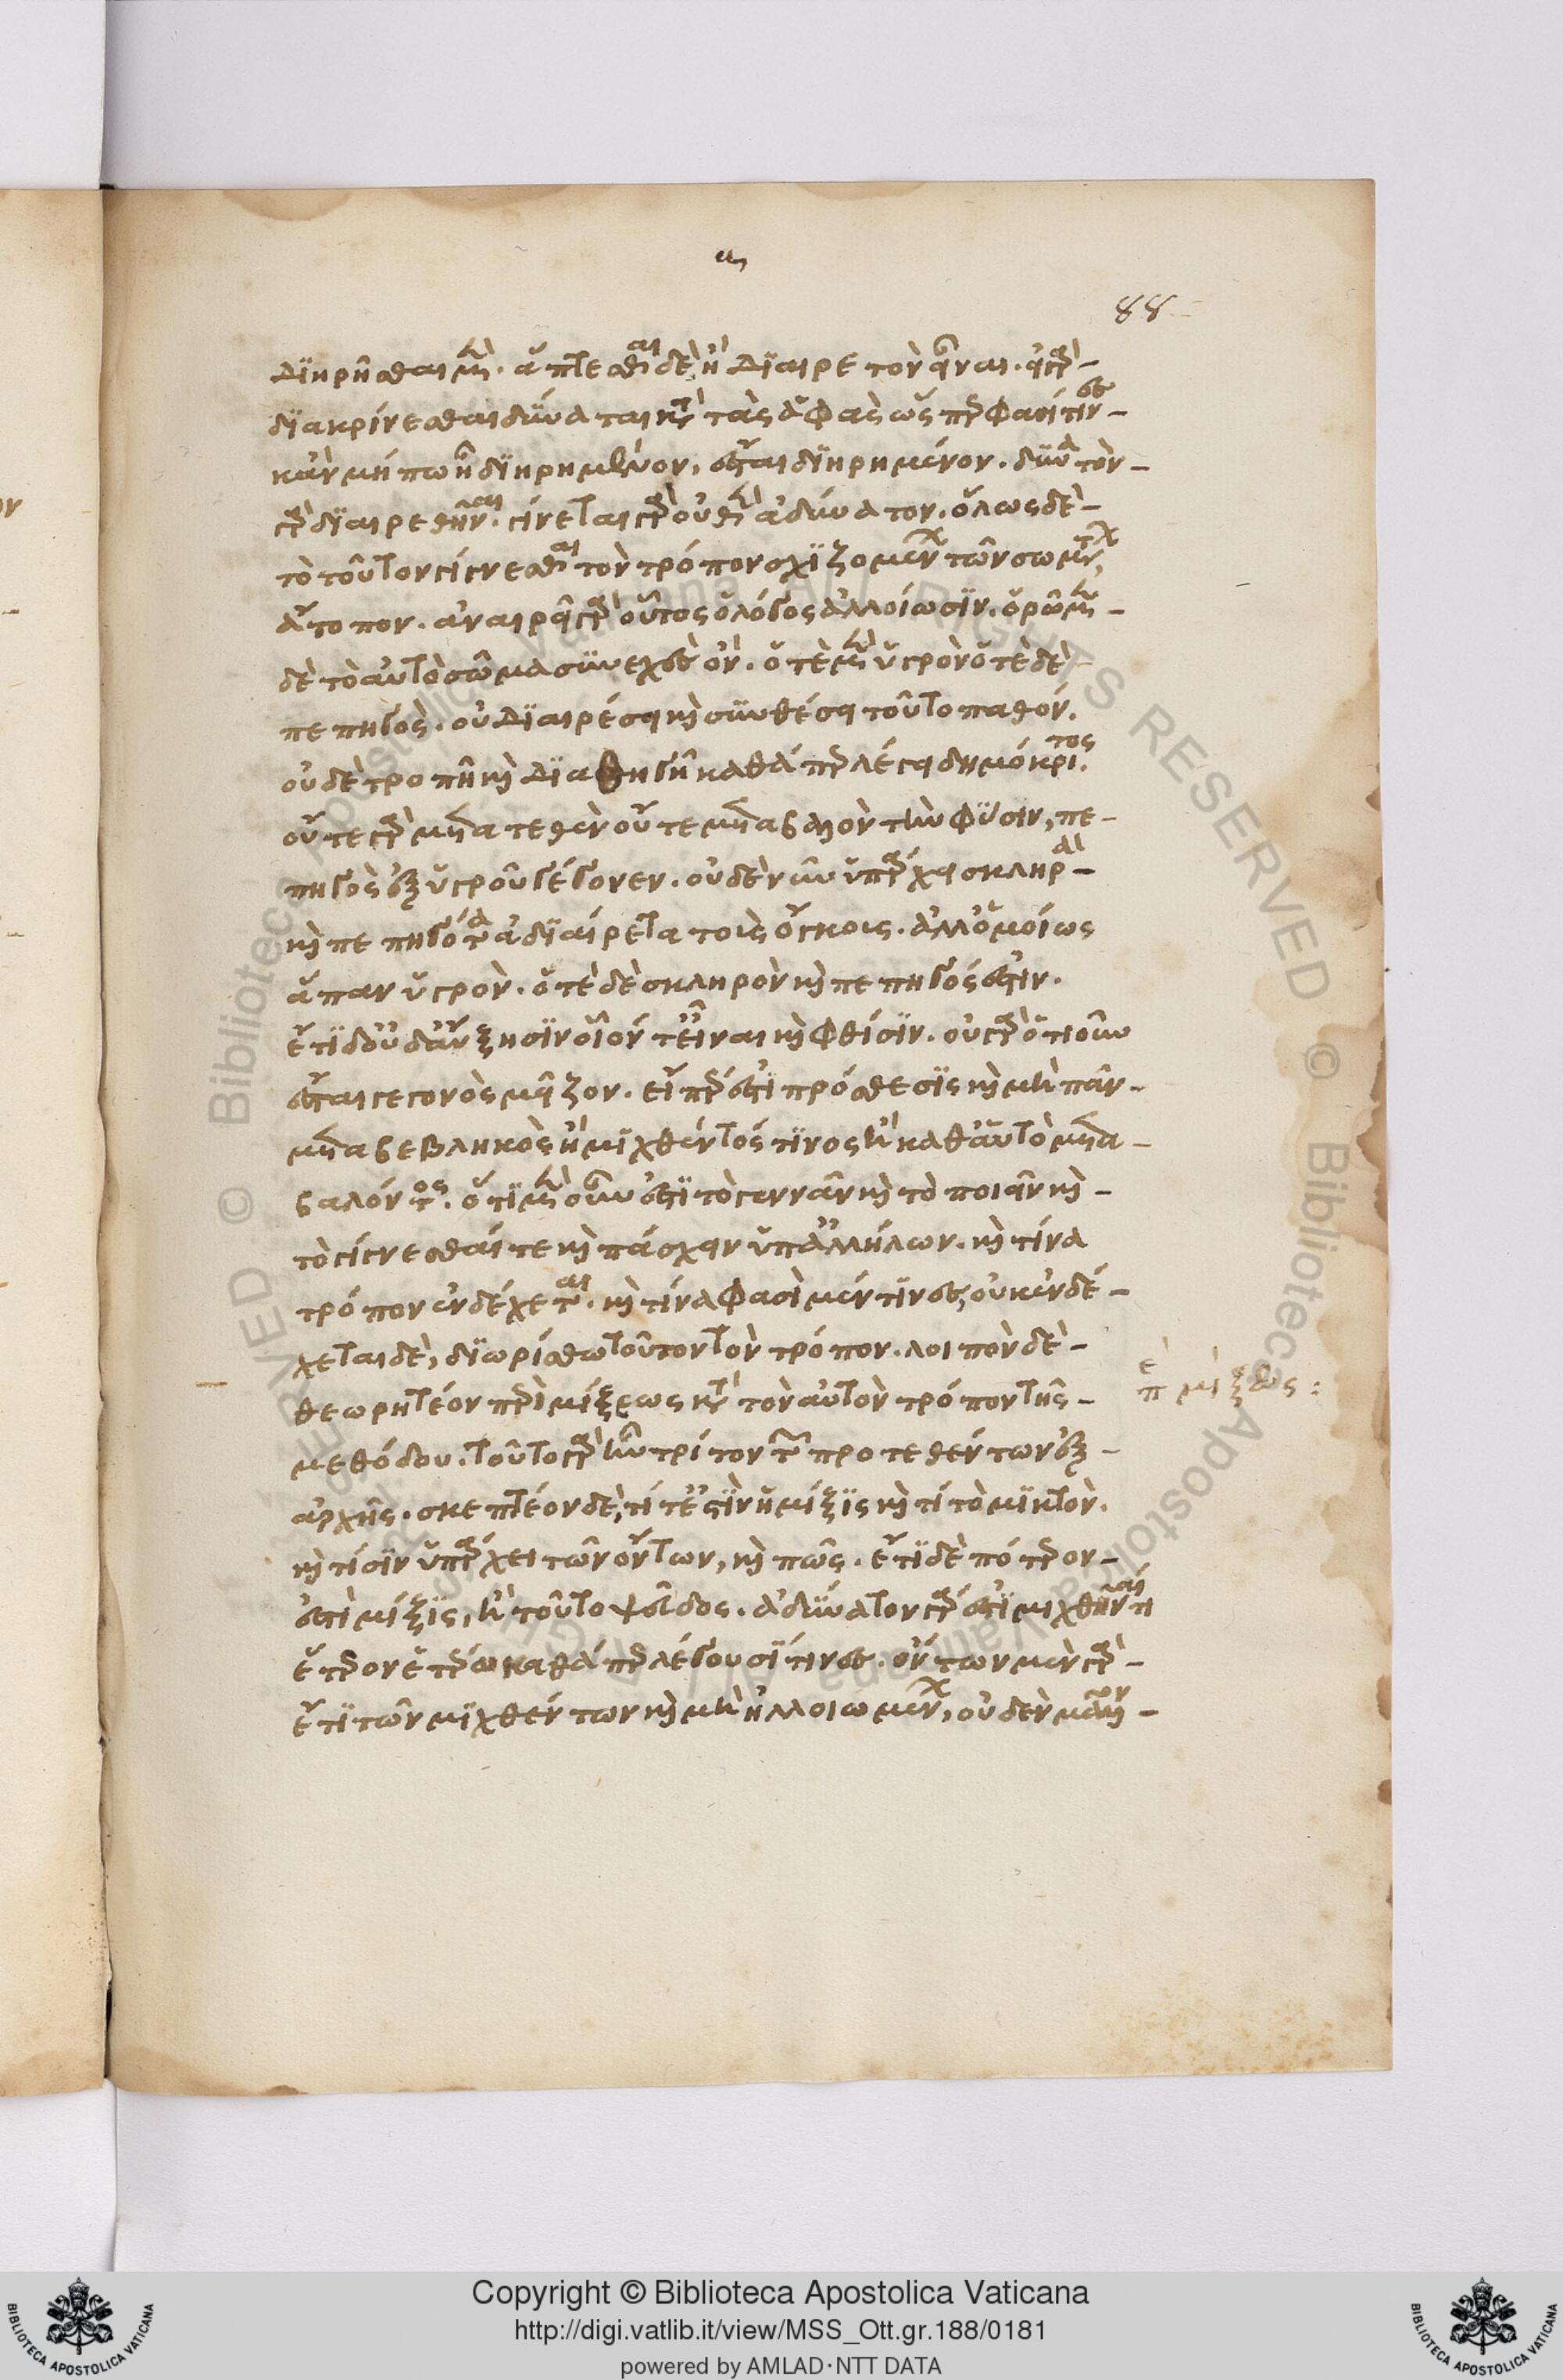 η
88
διηρῆσθαι μὲν. ἅπτεσθαι δὲ ἢ διαιρετὸν εἶναι. εἰ γὰρ
διακρίνεσθαι δύναται κατὰ τὰς ἁφὰς ὥσπερ φασί τινες
κἂν μήπω ῆ διηρημένον, ἔσται διηρημένον. δυνατὸν
γὰρ διαιρεθῆναι. γίνεται γὰρ οὐθὲν ἀδύνατον. ὅλως δὲ
τὸ τοῦτον γίγνεσθαι τὸν τρόπον σχιζομένων τῶν σωμάτων,
ἄτοπον. ἀναιρεῖ γὰρ οὗτος ὁ λόγος ἀλλοίωσιν. ὁρῶμεν
δὲ τὸ αὐτὸ σῶμα συνεχὲς ὂν. ὁτὲ μὲν ὑγρὸν ὁτὲ δὲ
πεπηγὸς. οὐ διαιρέσει καὶ συνθέσει τοῦτο παθόν.
οὐδὲ τροπῆ καὶ διαθηγῆ καθάπερ λέγει δημόκριτος.
οὔτε γὰρ μετατεθὲν οὔτε μεταβαλὸν τὴν φύσιν, πε
πηγὸς ἐξ ὑγροῦ γέγονεν. οὐδὲ νῦν ὑπάρχει σκληρὰ
καὶ πεπηγότα ἀδιαίρετα τοὶς ὄγκοις. ἀλλ' ὁμοίως
ἅπαν ὑγρὸν. ὁτὲ δὲ σκληρὸν καὶ πεπηγός ἐστιν.
ἔτι δ' οὐδ' αὔξησιν οἷόν τ' εἶναι καὶ φθίσιν. οὐ γὰρ ὁτιοῦν
ἔσται γεγονὸς μεῖζον. εἴπερ ἐστὶ πρόσθεσις καὶ μὴ πᾶν
μεταβεβληκὸς ἢ μιχθέντός τινος ἢ καθ' αὑτὸ μετα
βαλόντος. ὅτι μὲν οὖν ἐστὶ τὸ γεννᾶν καὶ τὸ ποιεῖν καὶ
τὸ γίγνεσθαί τε καὶ πάσχειν ὑπ' ἀλλήλων. καὶ τίνα
τρόπον ἐνδέχεται. καὶ τίνα φασὶ μέν τινες, οὐκ ἐνδέ
χεται δὲ, διωρίσθω τοῦτον τὸν τρόπον. λοιπὸν δὲ
θεωρητέον περὶ μίξεως κατὰ τὸν αὐτὸν τρόπον τῆς
περὶ μίξεως:
μεθόδου. τοῦτο γὰρ ἦν τρίτον τῶν προτεθέντων ἐξ
ἀρχῆς. σκεπτέον δὲ, τί τ' ἐστὶν ἡ μίξις καὶ τί τὸ μικτὸν.
καὶ τίσιν ὑπάρχει τῶν ὄντων, καὶ πῶς. ἔτι δὲ πότερον
ἐστὶ μίξις, ἢ τοῦτο ψεῦδος. ἀδύνατον γάρ ἐστι μιχθῆναί τι
ἕτερον ἑτέρω καθάπερ λέγουσί τινες. ὄντων μὲν γὰρ
ἔτι τῶν μιχθέντων καὶ μὴ ἠλλοιωμένων, οὐδὲν μᾶλλον